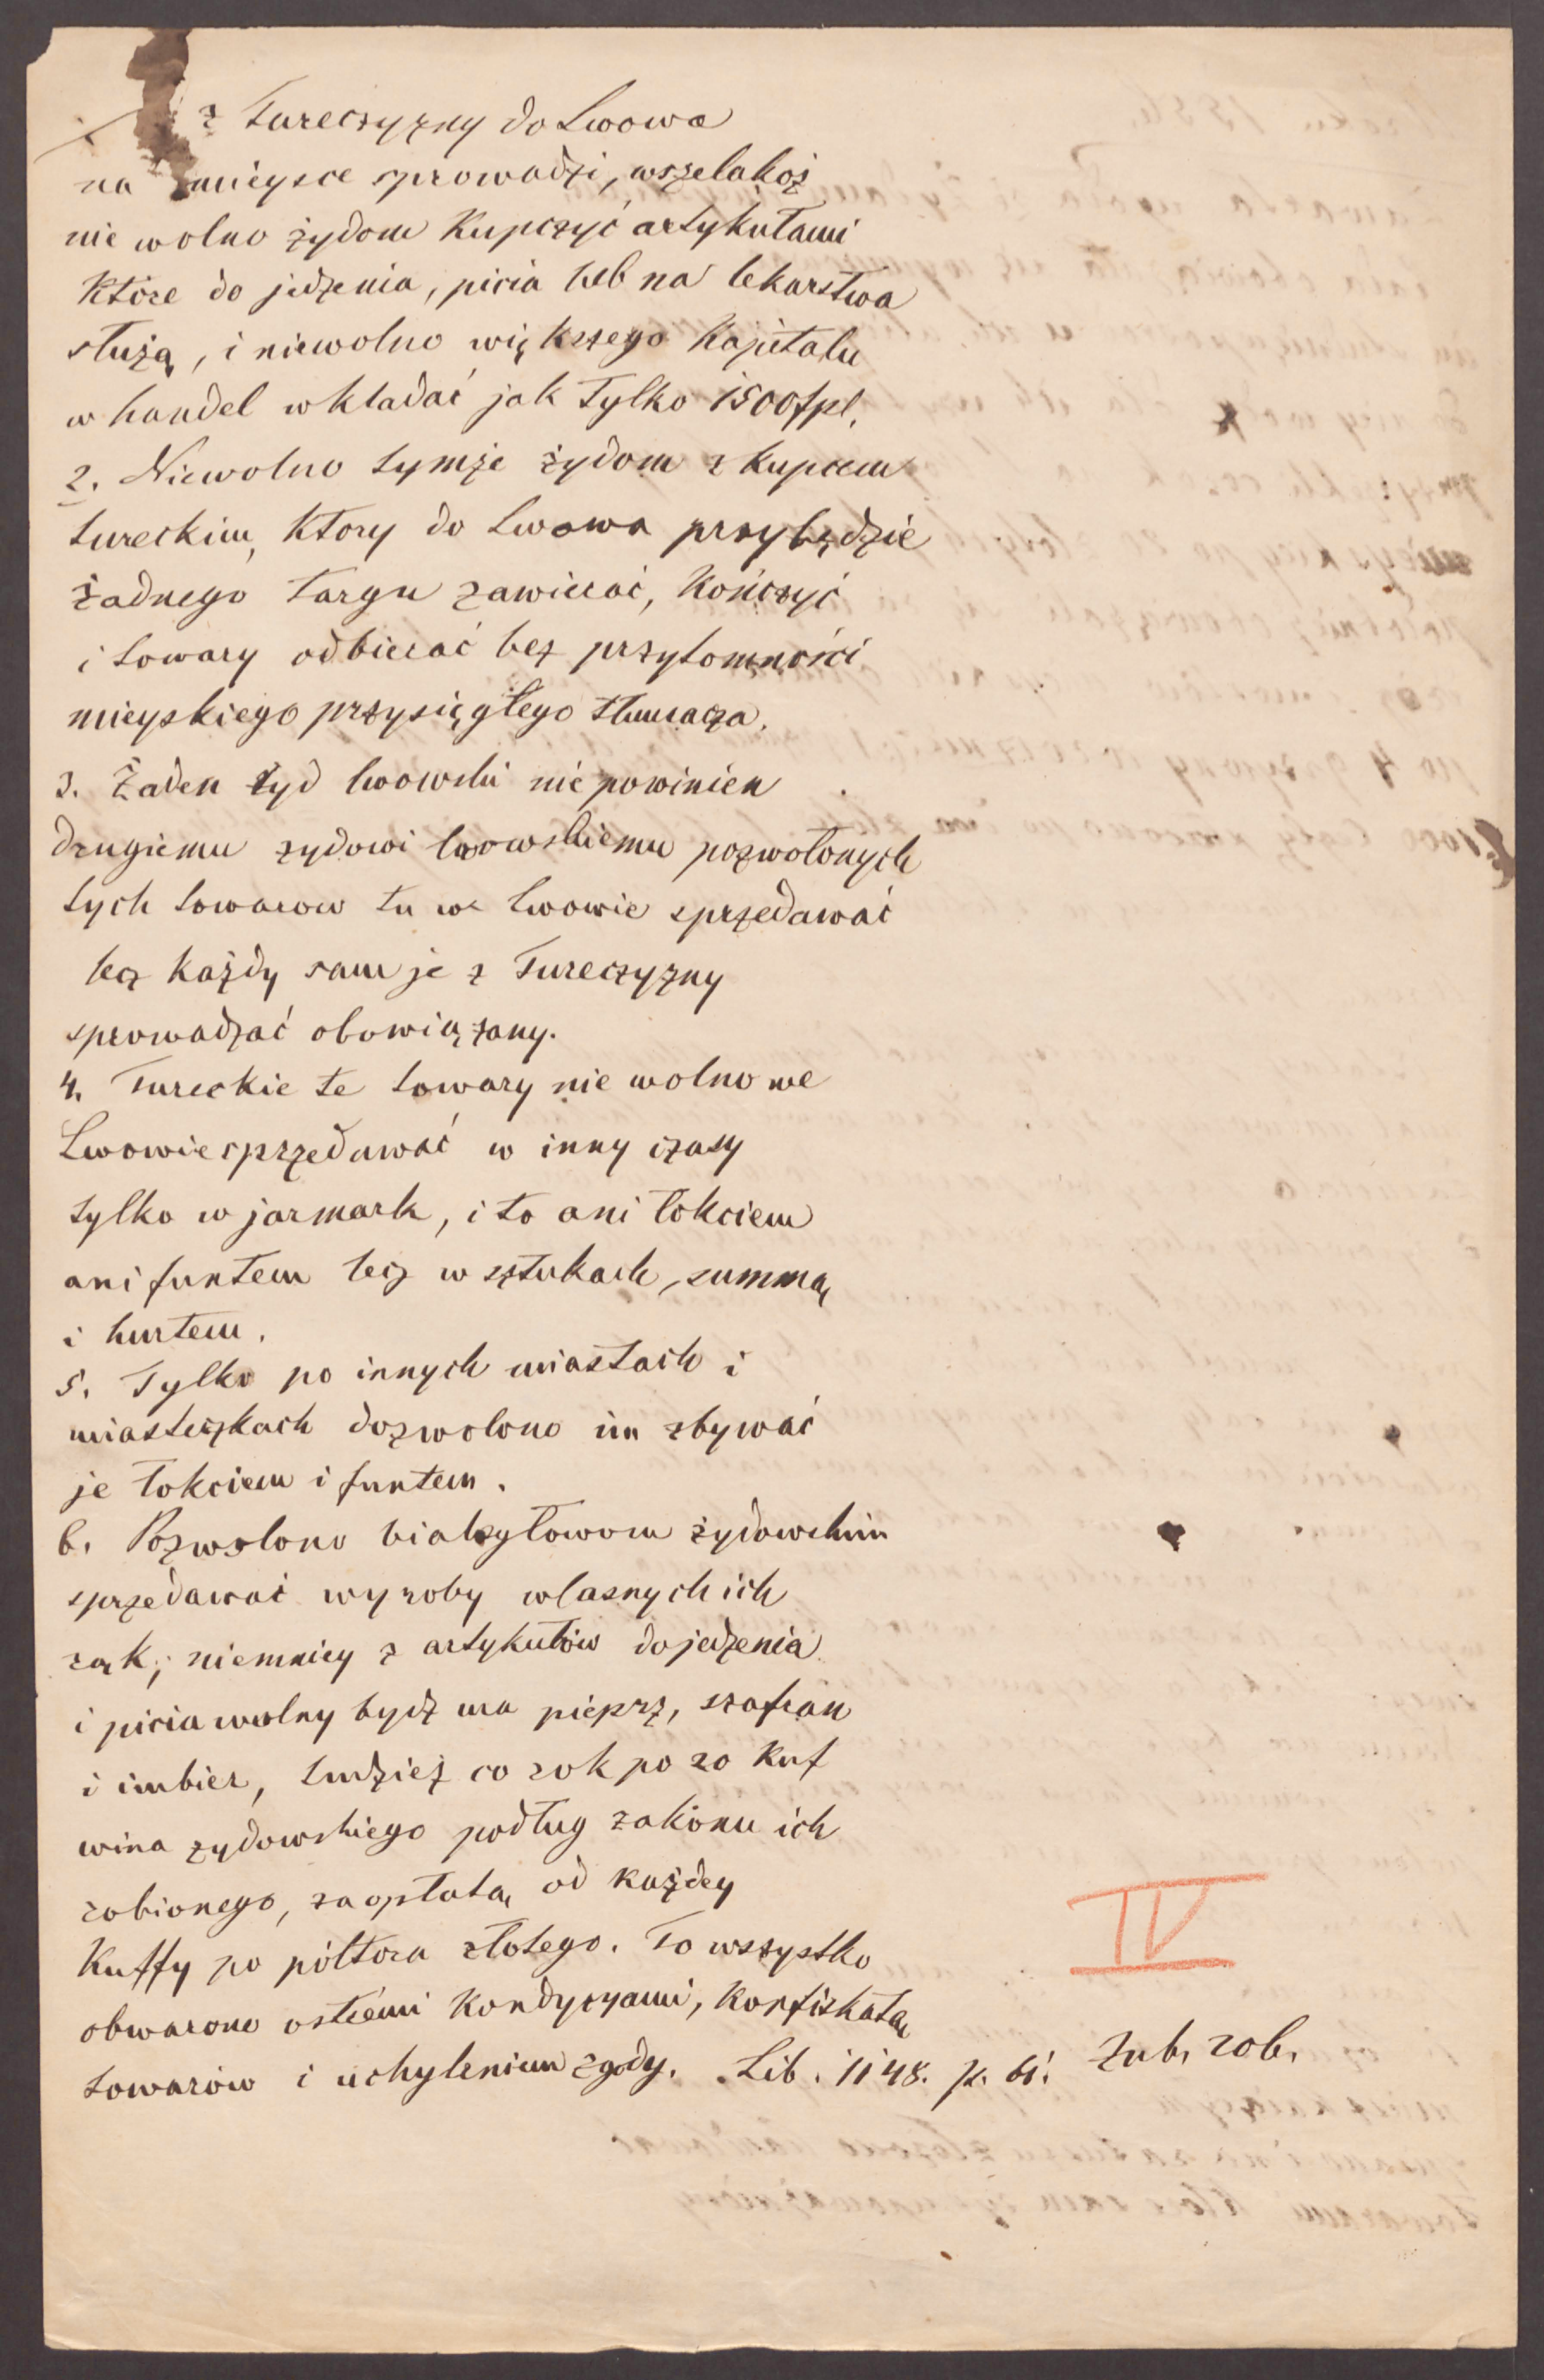 z Tureczyzny do Lwowa
na mieysce sprowadzi, wszelakoż
nie wolno żydom kupczyć artykułami
które do jedzenia, picia lub na lekarstwa
służą, i niewolno większego kapitału
w handel wkładać jak tylko 1500 fpl.
2. Niewolno tymże żydom z kupcem
tureckim, ktory do Lwowa przybędzie
żadnego targu zawierać, kończyć
i towary odbierać bez przytomności
mieyskiego przysięgłego tłumacza.
3. Żaden żyd lwowski nie powinien
drugiemu zydowi lwowskiemu pozwolonych
tych towarow tu we Lwowie sprzedawać
lecz każdy sam je z Tureczyzny
sprowadzać obowiązany.
4. Tureckie te towary nie wolno we
Lwowie sprzedawać w inny czasy
tylko w jarmark, i to ani łokciem
ani funtem lecz w sztukach, summą
i hurtem.
5. Tylko po innych miastach i
miasteczkach dozwolono im zbywać
je łokciem i funtem.
6. Pozwolono białogłowom żydowskim
sprzedawać wyroby własnych ich
rąk; niemniey z artykułów do jedzenia
i picia wolny bydź ma pieprz, szafran
i imbier, tudzież co rok po 20 kuf
wina zydowskiego podług zakonu ich
robionego, za opłatą od każdey
kuffy po półtora złotego. To wszystko
obwarono ostremi kondycyami, konfiskatą
towarów i uchyleniem zgody. Lib. 1148. p. 61. Zub. rob.
IV